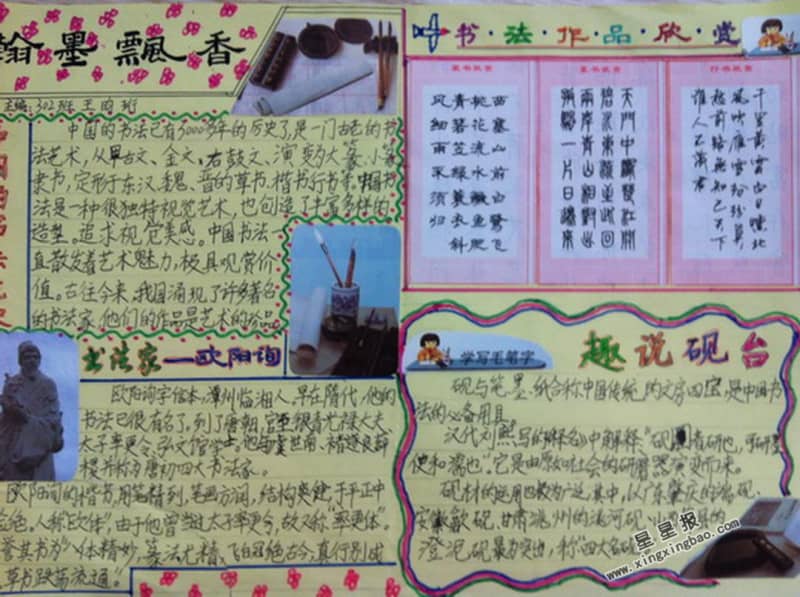 翰墨飘香
主编:302班 王雨珩
中国的书法已有3000多年的历史了,是一门古老的书
法艺术,从甲古文、金文、右鼓文、演变为大篆、小篆
隶书,定形于东汉、魏、晋的草书、楷书行书等。中国书
法是一种很独特视觉艺术,也包造了丰富多样的
造型。追求视觉美感。中国书法一
直散发着艺术魅力,极具观赏价
值。古往今来,我国涌现了许多著名
的书法家,他们的作品是艺术的珍品
书法家——欧阳询
欧阳询字信本,潭州临湘人,早在隋代,他的
书法已很有名了。到了唐朝,官至银青光禄大夫、
太子率更令、弘文馆学士。他与虞世南、褚遂良薛
稷并称为唐初四大书法家。
欧阳询的楷书,用笔精到,笔画方润,结构爽健,于平正中
险绝,人称"欧体",由于他曾当过太子率更令,故又称"率更体"。
誉其书为"八体精妙,篆法尤精、飞白冠绝古今,真行别成
草书跌荡流通"。
书·法·作·品·欣·赏
篆书欣赏
西塞山前白鹭飞
桃花流水鳜鱼肥
青箬笠绿蓑衣斜
风细雨不须归
篆书欣赏
天门中断楚江开
碧水东流至此回
两岸青山相对出
孤帆一片日边来
行书欣赏
千里黄云白日曛北
风吹雁雪纷纷莫
愁前路无知己天下
谁人不识君
学写毛笔字
趣说砚台
砚与笔、墨、纸合称中国传统的文房四宝,是中国书
法的必备用具
汉代刘熙写的《释名》中解释:"砚者研也,可研墨
使和濡也"。它是由原始社会的研磨器演变而来。
砚材的运用也较为广泛,其中,以广东肇庆的端砚、
安徽歙砚、甘肃洮州的洮河砚、
澄泥砚最为突出,称"四大名砚
星星报
www.xingxingbao.com